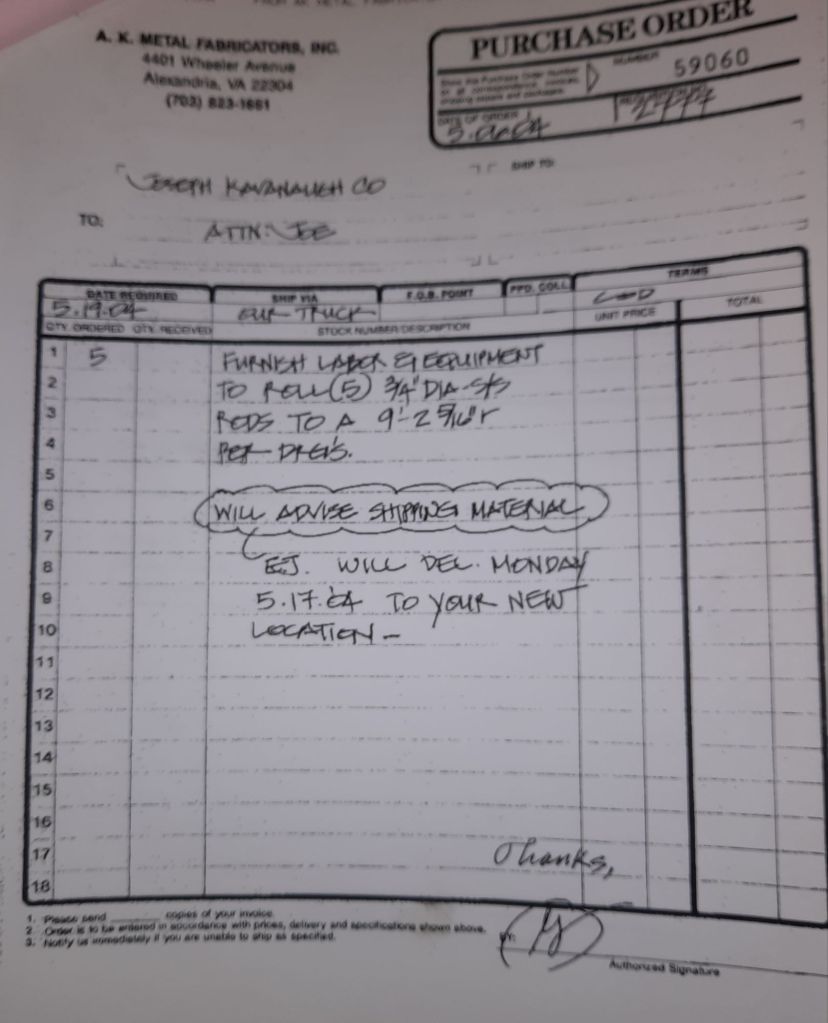 A. K. METAL FABRICATORS, INC.
4401 Wheeler Avenue
Alexandria, VA 22304
(703) 823-1661
PURCHASE ORDER
NUMBER
59060
DATE OF ORDER
JOSEPH KAVANAUGH CO
SHIP TO:
TO:
ATTN: JOE
DATE REQUIRED SHIP VIA F.O.B. POINT PPD. COLL. TERMS
5.19.04 OUR TRUCK COD
QTY. ORDERED QTY. RECEIVED STOCK NUMBER/DESCRIPTION UNIT PRICE TOTAL
1 5 FURNISH LABOR & EQUIPMENT
2 TO ROLL (5) 3/4" DIA S/S
3 RODS TO A 9'-2 5/16" r
4 PER DWG'S.
5
6 WILL ADVISE SHIPPING MATERIAL
7
8 E.J. WILL DEL. MONDAY
9 5.17.04 TO YOUR NEW
10 LOCATION -
11
12
13
14
15
16
17 Thanks,
18
1. Please send ______ copies of your invoice.
2. Order is to be entered in accordance with prices, delivery and specifications shown above.
3. Notify us immediately if you are unable to ship as specified.
BY:
Authorized Signature